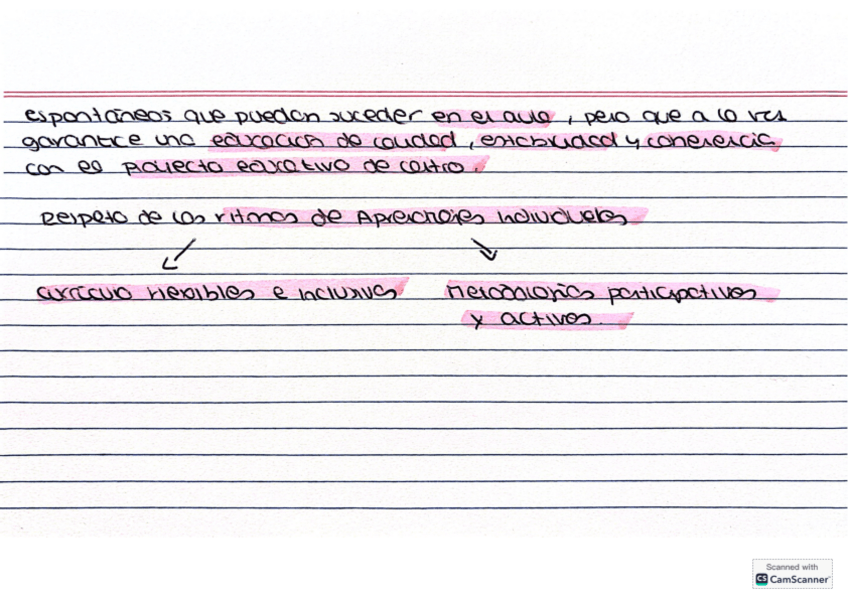 espontáneos que puedan suceder en el aula, pero que a la vez
garantice una educación de calidad, estabilidad y coherencia
con el proyecto educativo de centro.
Respeto de los ritmos de Aprendizajes individuales
currículo flexibles e inclusivos
Metodologías participativas
y activas.
Scanned with
CS CamScanner